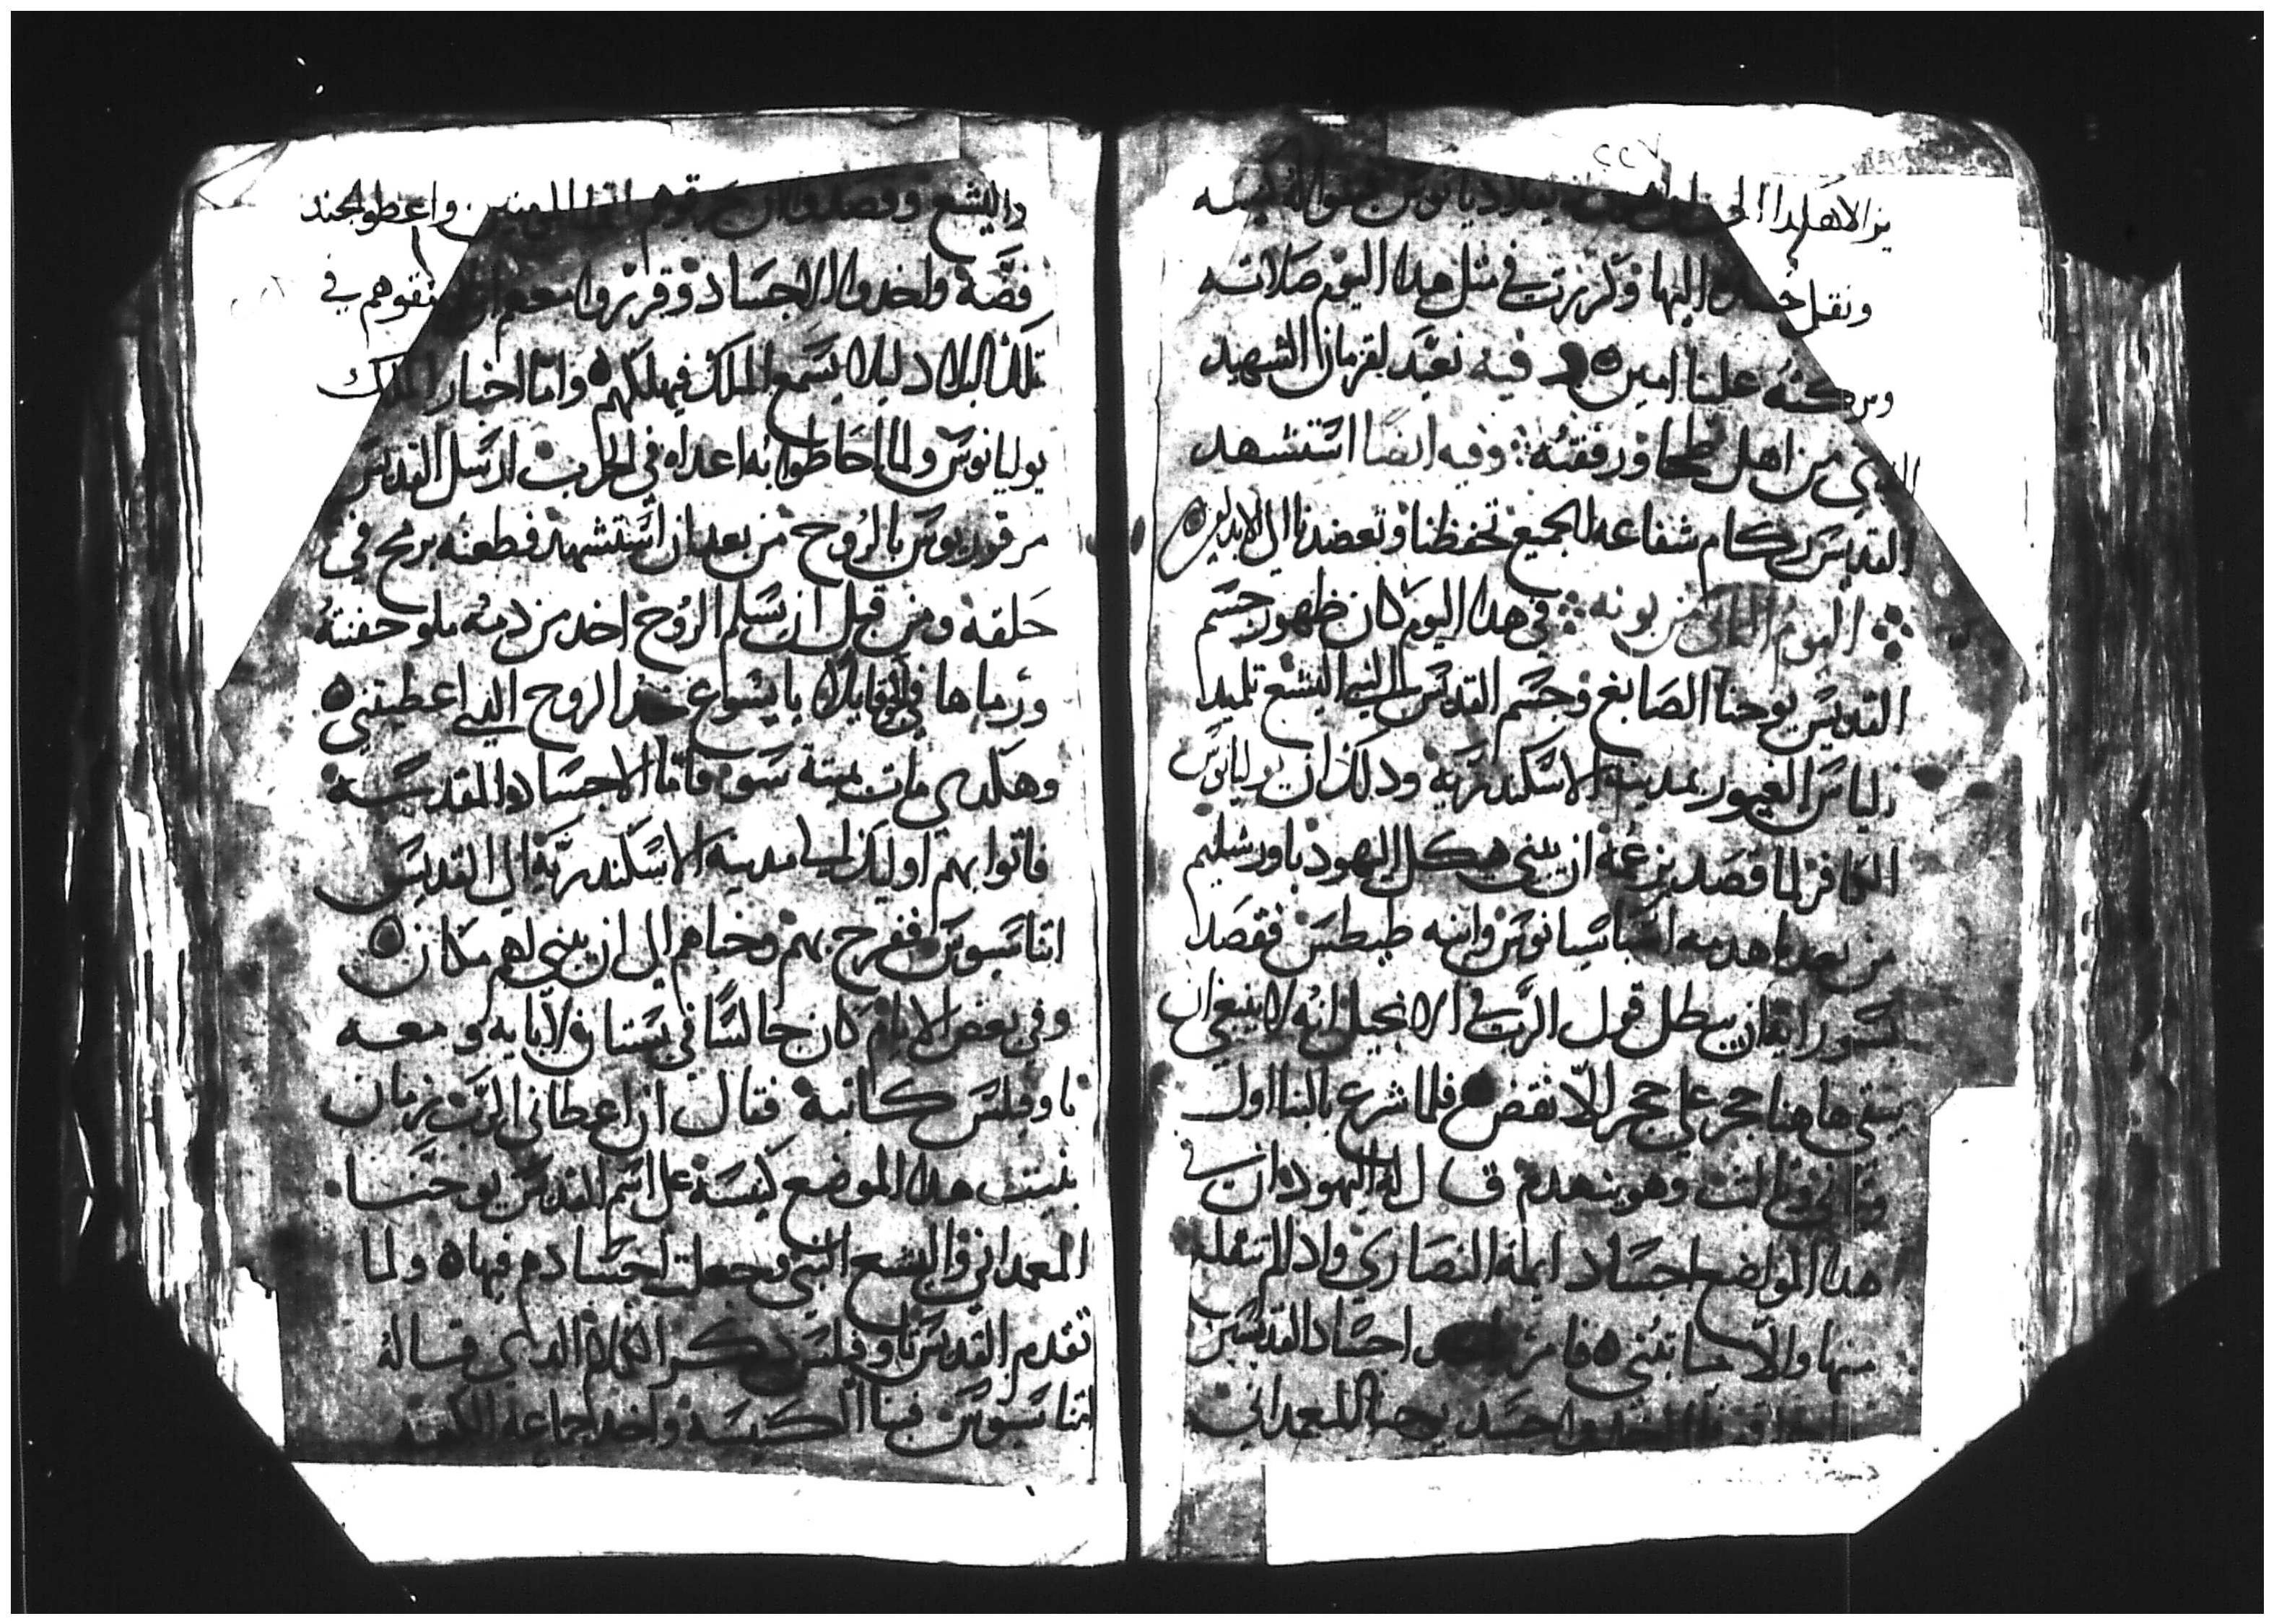 ٢٢٧
ونقل جسده اليها وكرزت في مثل هدا اليوم صلاته
وبركته علينا امين وفيه نعيد لقزمان الشهيد
الدي من اهل طحا ورفقته وفيه ايضا استشهد
القديس شفاعه الجميع تحفظنا وتعضدنا الي الابد امين
اليوم التاني من بونه في هدا اليوم كان ظهور جسم
القديس يوحنا الصابغ وجسم القديس اليشع تلميد
الياس الغيور بمدينة الاسكندرية ودلك ان يوليانوس
الكافر لما قصد بزعمه ان يبني هيكل اليهود باورشليم
من بعد ما هدمه اسباسيانوس وابنه طيطس فقصد
بسو رايه ان يبطل قول الرب في الانجيل انه لا ينبغي ان
يبقي هاهنا حجر علي حجر الا نقض فلما شرع بالبنا اول
وتاني وتالت وهو ينهدم قال له اليهود ان في
هدا الموضع اجساد ايمة النصاري وادا لم تنقل
منها والا ما تبني فامر اجساد القديسين
جسد يوحنا المعمداني
واليشع واعطو الجند
فضة واخدوا الاجساد وقرروا معهم ان لا يبقوهم في
تلك البلاد ليلا يسمع الملك فيهلكهم واما اخبار الملك
يوليانوس ولما احاطوا به اعداه في الحرب ارسل القديس
مرقوريوس بالروح من بعد ان استشهد فطعنه برمح في
حلقه ومن قبل ان يسلم الروح اخد من دمه ملو حفنته
ورماها في الهوا قايلا يا يسوع خد الروح التي اعطيتني
وهكدي مات ميتة سو فاما الاجساد المقدسة
فاتوا بهم اوليك الي مدينة الاسكندرية الي القديس
اتناسيوس ففرح بهم وخباهم الي ان يبني لهم مكان
وفي بعض الايام كان جالسا في بستان لابايه ومعه
تاوفيلس كاتبه فقال ان اعطاني الرب زمان
بنيت هدا الموضع كنيسة علي اسم القديس يوحنا
المعمداني واليشع النبي وجعلت اجسادهم فيها ولما
تقدم القديس تاوفيلس دكر الكلام الدي قاله
اتناسيوس فبنا الكنيسة واخد جماعة الكهنة